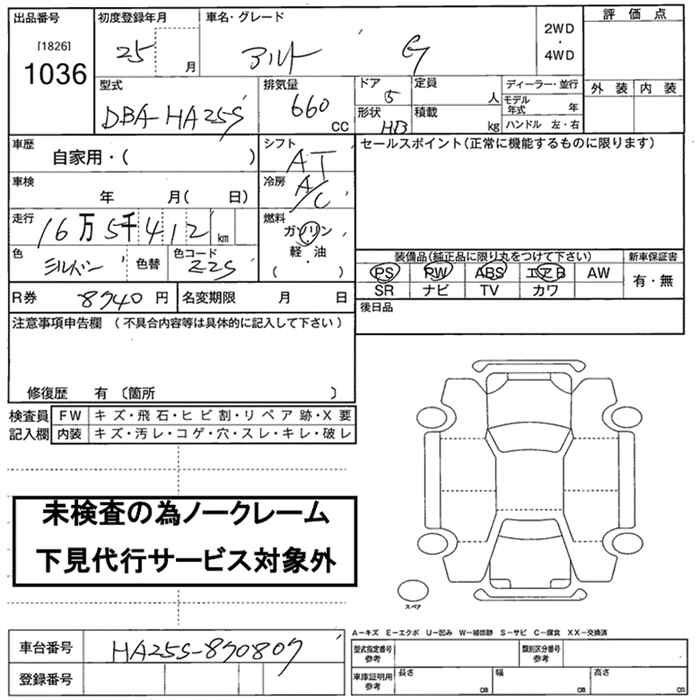 出品番号 初度登録年月 車名・グレード 評価点
[1826] 25 月 アルト G 2WD・4WD
1036 外装 内装
型式 排気量 ドア 定員 ディーラー・並行
DBA-HA25S 660 CC 5 人 モデル年式 年
形状 HB 積載 kg ハンドル 左・右
車歴 シフト セールスポイント(正常に機能するものに限ります)
自家用・( ) AT
車検 冷房
年 月( 日) A/C
走行 燃料
16万5千412 km ガソリン
軽・油
( )
色 色替 色コード 装備品(純正品に限り丸をつけて下さい) 新車保証書
シルバー Z2S PS PW ABS エアB AW 有・無
SR ナビ TV カワ
R券 8940 円 名変期限 月 日 後日品
注意事項申告欄 (不具合内容等は具体的に記入して下さい)
修復歴 有 〔箇所 〕
検査員 FW キズ・飛石・ヒビ割・リペア跡・X要
記入欄 内装 キズ・汚レ・コゲ・穴・スレ・キレ・破レ
未検査の為ノークレーム
下見代行サービス対象外
スペア
A−キズ E−エクボ U−凹み W−補修跡 S−サビ C−腐食 XX−交換済
車台番号 HA25S-870807 型式指定番号 参考 類別区分番号 参考
登録番号 車庫証明用 参考 長さ cm 幅 cm 高さ cm